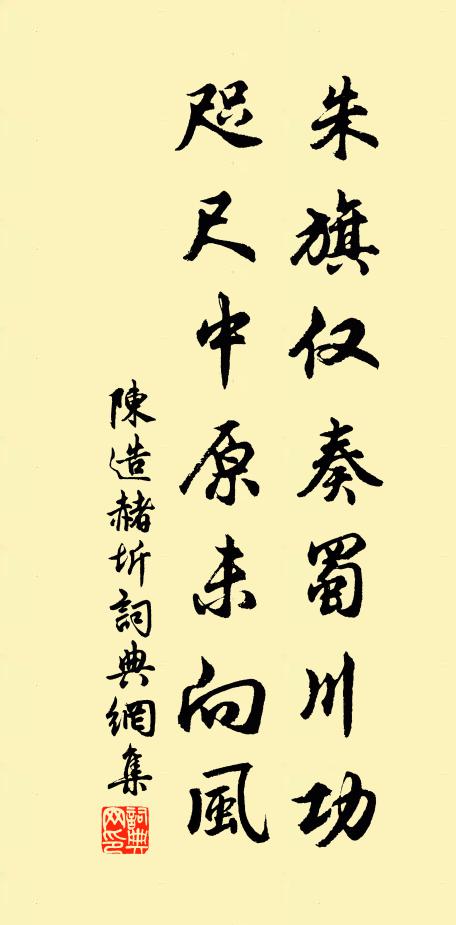 朱旗仅奏蜀川功
咫尺中原未向風
陳造赭圻詞典網集
詞典
网印